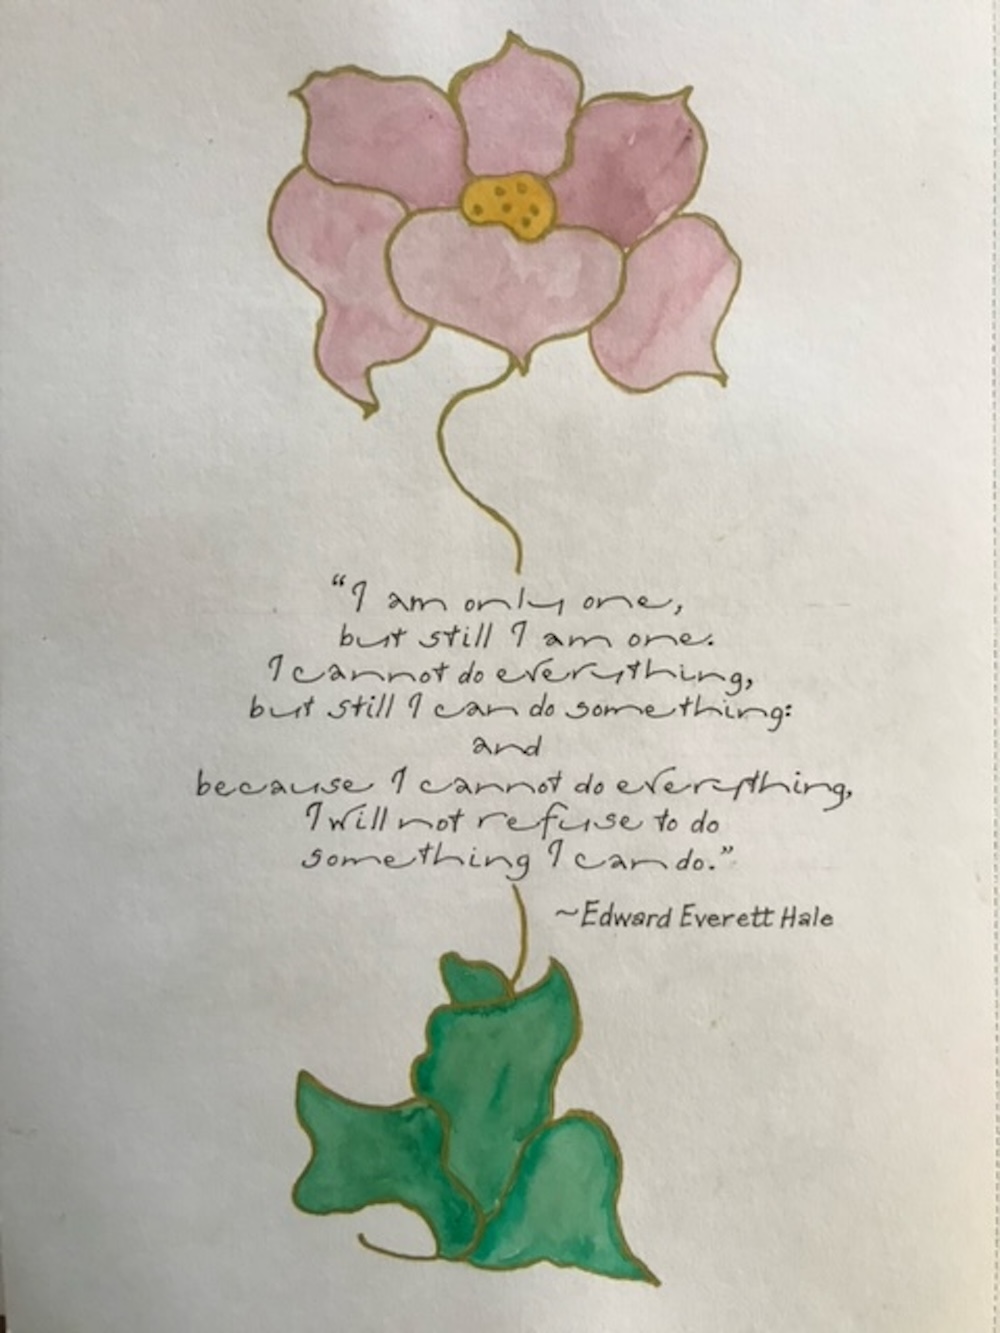 “I am only one,
but still I am one.
I cannot do everything,
but still I can do something:
and
because I cannot do everything,
I will not refuse to do
something I can do.”
~Edward Everett Hale